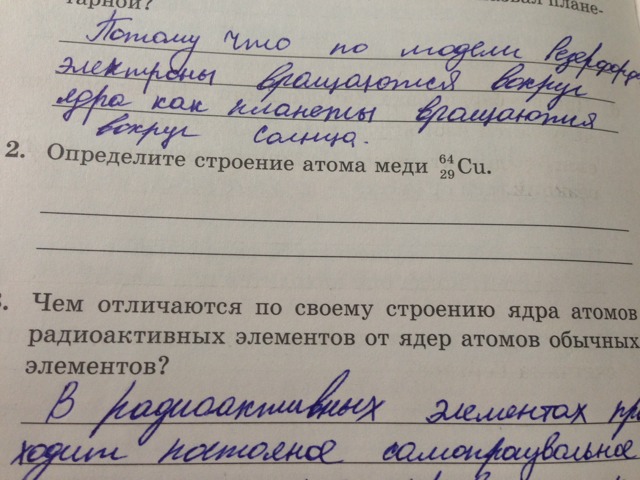 тарной?
Потому что по модели Резерфорда
электроны вращаются вокруг
ядра как планеты вращаются
вокруг солнца.
2. Определите строение атома меди ⁶⁴₂₉Cu.
Чем отличаются по своему строению ядра атомов
радиоактивных элементов от ядер атомов обычных
элементов?
В радиоактивных элементах про
ходит постояное самопраувольное